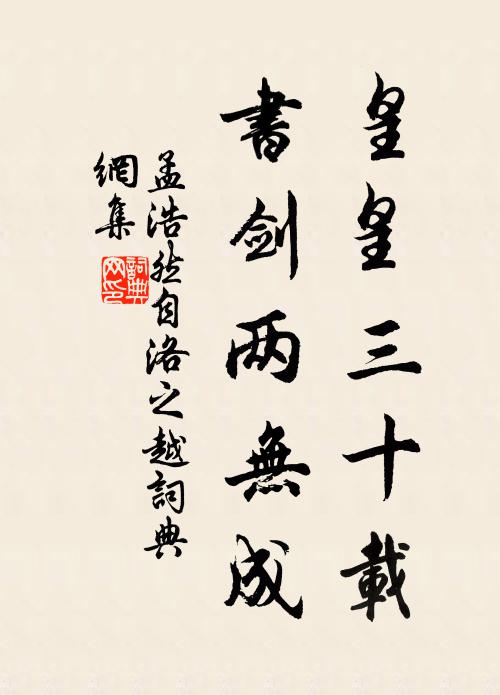 皇皇三十載
書劍两無成
孟浩然自洛之越詞典
網集
詞典
网印